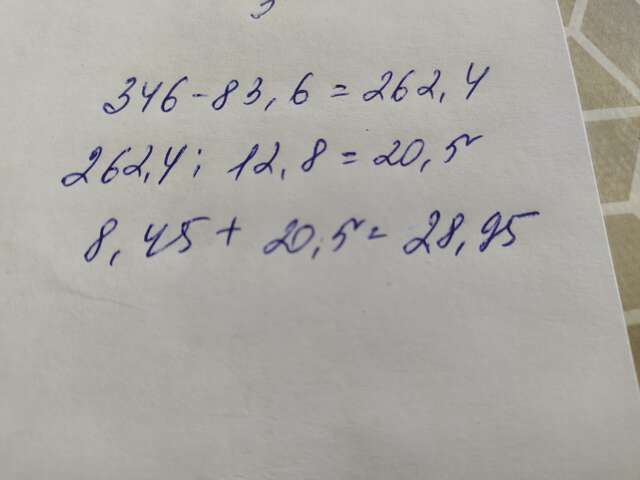 346-83,6=262,4
262,4: 12,8=20,5
8,45+ 20,5= 28,95